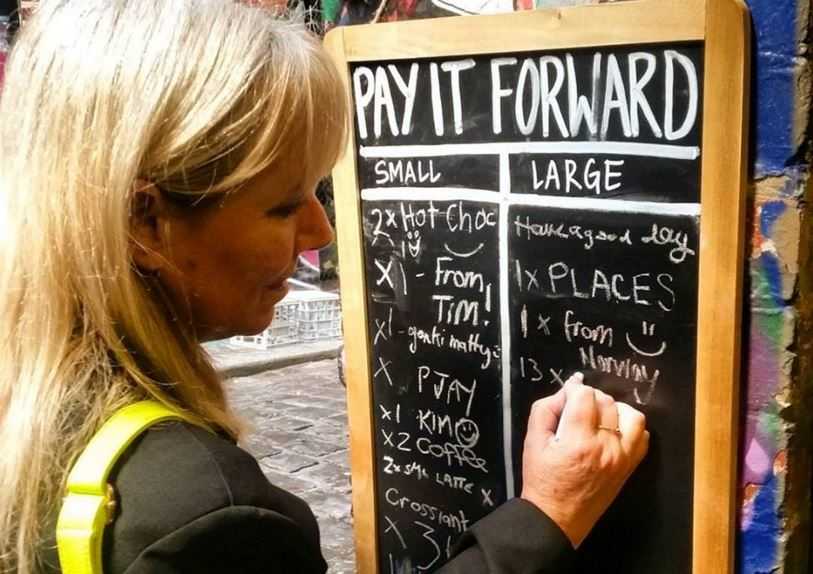 PAY IT FORWARD
SMALL
2x Hot Choc
x1
x1 - From
Tim!
x1 - genki matty
x PJAY
x1 KIM
x2 Coffee
2x SML LATTE x
Crossiant
x 3
LARGE
Have a good day
1x PLACES
1x from
Norway
13 x